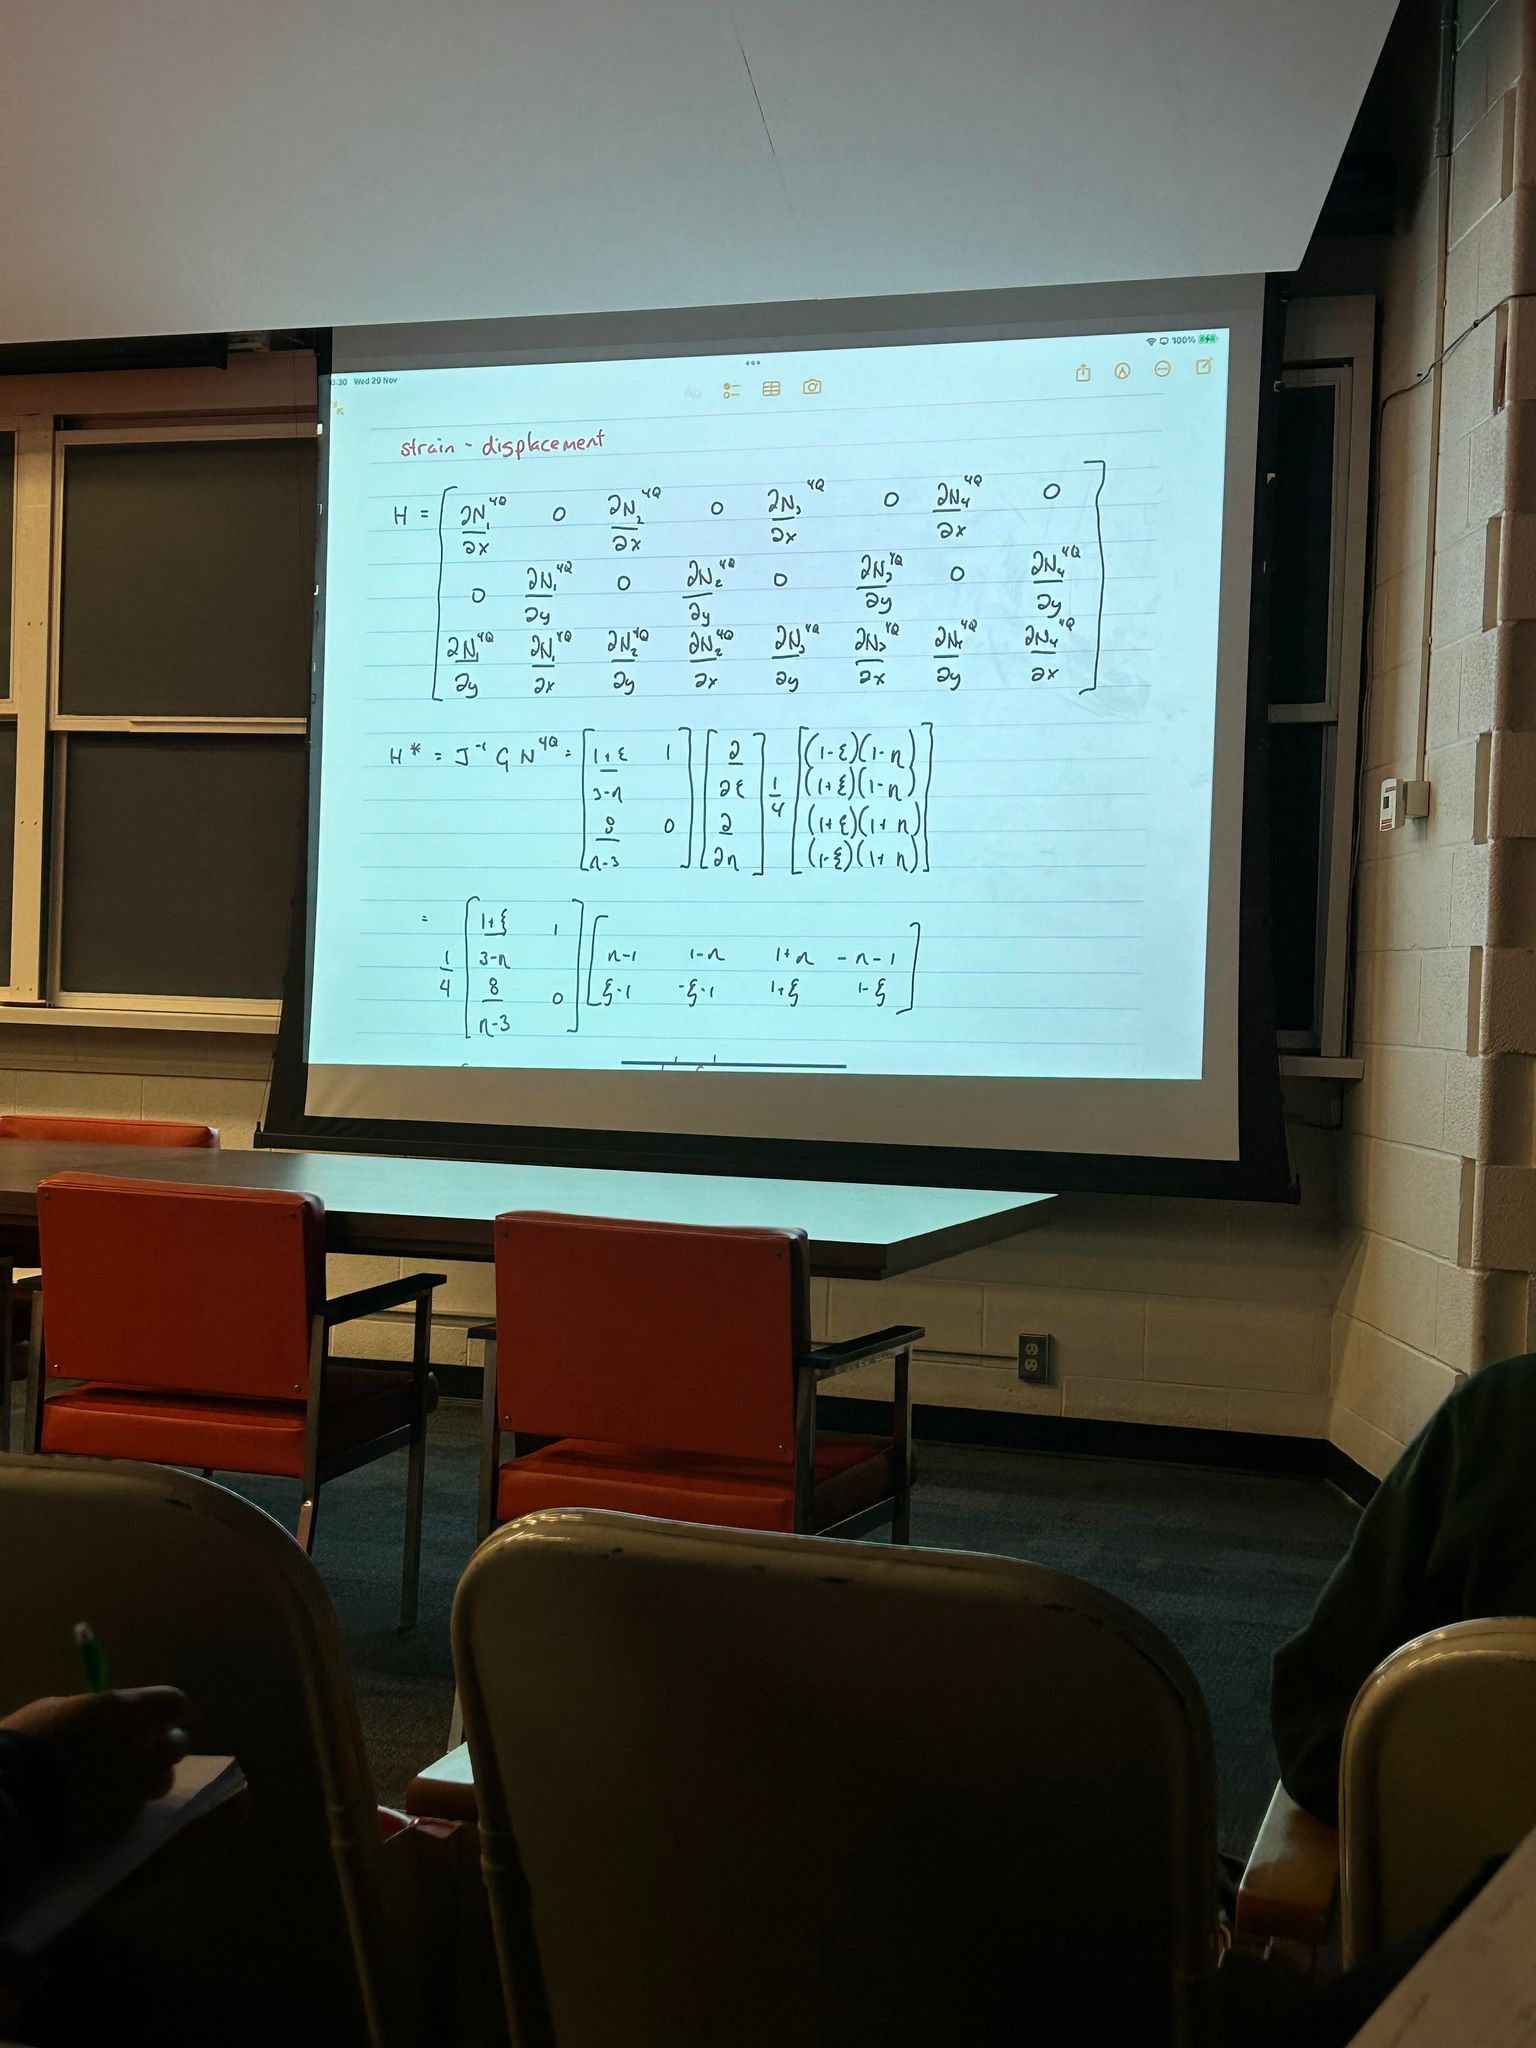 10:30 Wed 29 Nov
100%
Aa
strain - displacement
H = [ ∂N₁^4Q/∂x 0 ∂N₂^4Q/∂x 0 ∂N₃^4Q/∂x 0 ∂N₄^4Q/∂x 0
0 ∂N₁^4Q/∂y 0 ∂N₂^4Q/∂y 0 ∂N₃^4Q/∂y 0 ∂N₄^4Q/∂y
∂N₁^4Q/∂y ∂N₁^4Q/∂x ∂N₂^4Q/∂y ∂N₂^4Q/∂x ∂N₃^4Q/∂y ∂N₃^4Q/∂x ∂N₄^4Q/∂y ∂N₄^4Q/∂x ]
H* = J⁻¹ G N^4Q = [ (1+ξ)/(3-η) 1 ; 8/(η-3) 0 ] [ ∂/∂ξ ; ∂/∂η ] 1/4 [ (1-ξ)(1-η) ; (1+ξ)(1-η) ; (1+ξ)(1+η) ; (1-ξ)(1+η) ]
= 1/4 [ (1+ξ)/(3-η) 1 ; 8/(η-3) 0 ] [ η-1 1-η 1+η -η-1 ; ξ-1 -ξ-1 1+ξ 1-ξ ]